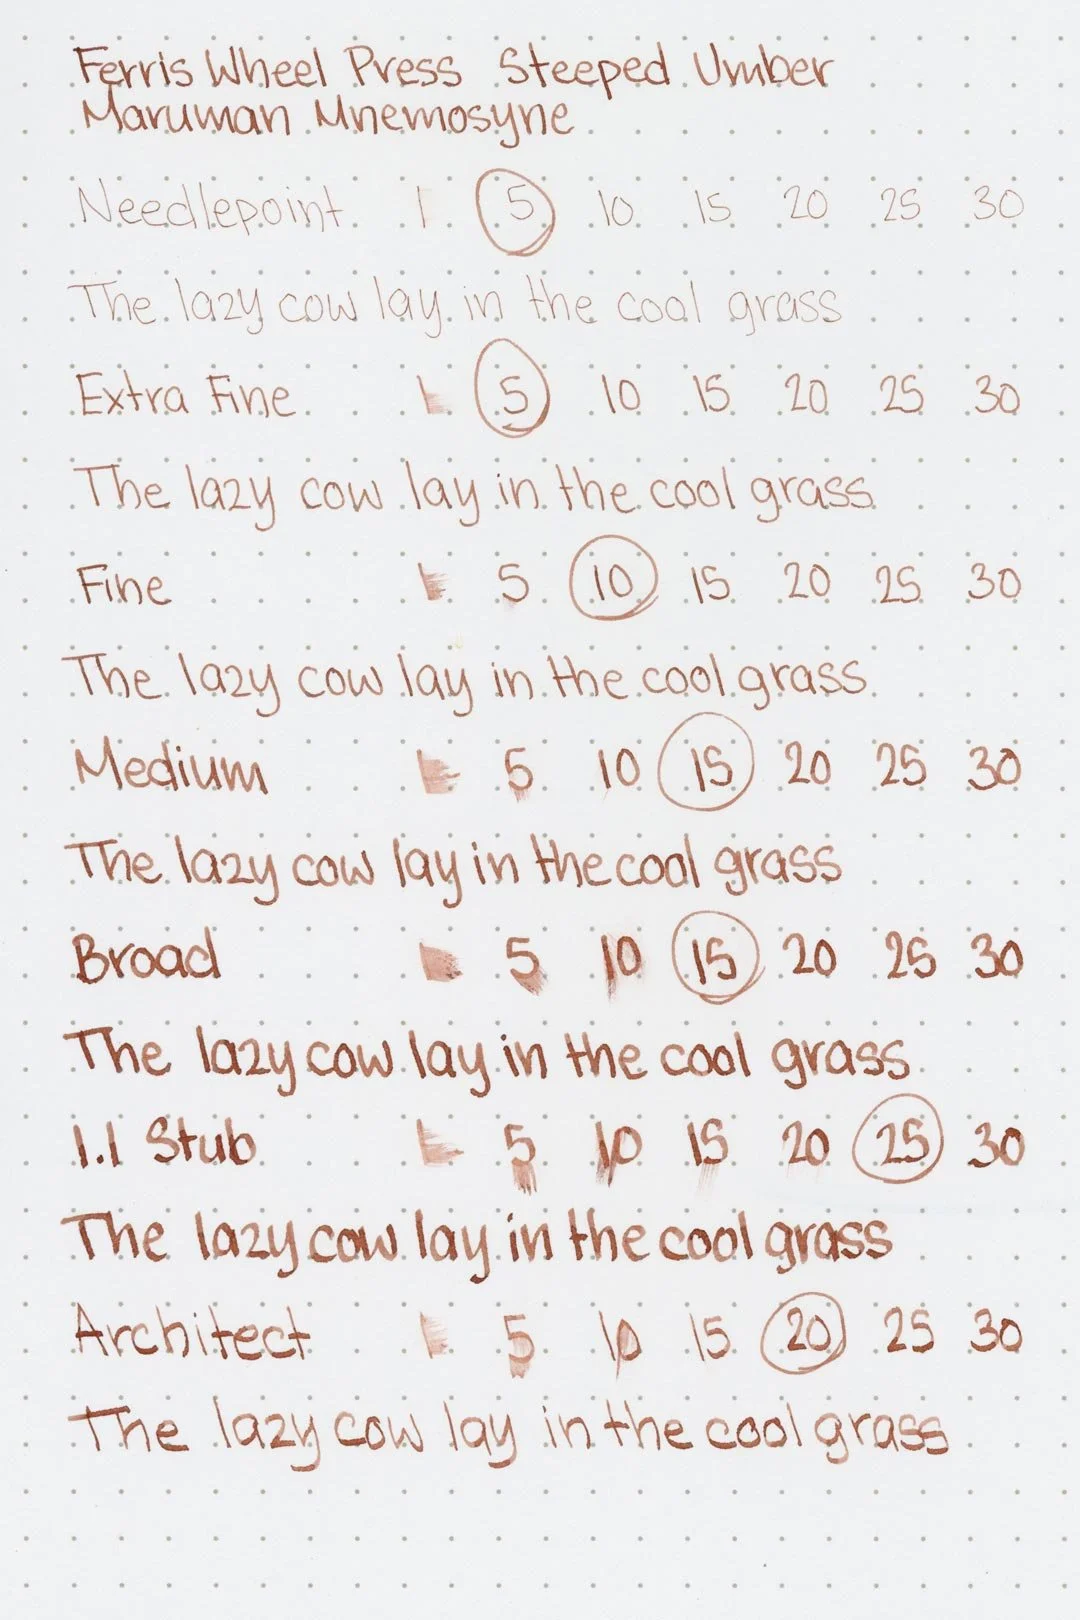 Ferris Wheel Press Steeped Umber
Maruman Mnemosyne
Needlepoint 1 5 10 15 20 25 30
The lazy cow lay in the cool grass
Extra Fine 1 5 10 15 20 25 30
The lazy cow lay in the cool grass
Fine 1 5 10 15 20 25 30
The lazy cow lay in the cool grass
Medium 1 5 10 15 20 25 30
The lazy cow lay in the cool grass
Broad 1 5 10 15 20 25 30
The lazy cow lay in the cool grass
1.1 Stub 1 5 10 15 20 25 30
The lazy cow lay in the cool grass
Architect 1 5 10 15 20 25 30
The lazy cow lay in the cool grass